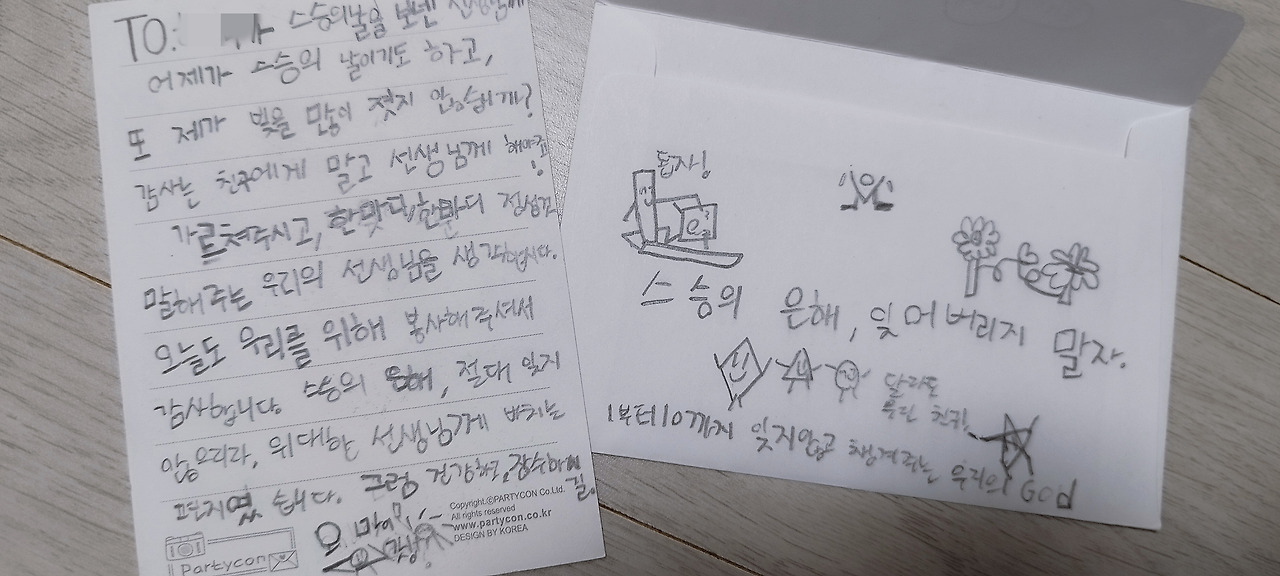 TO: 스승의날을 보낸 선생님께
어제가 스승의 날이기도 하고,
또 제가 빚을 많이 졌지 않습니까?
감사는 친구에게 말고 선생님께 해야죠!
가르쳐주시고, 한마디, 한마디 정성껏
말해주는 우리의 선생님을 생각합니다.
오늘도 우리를 위해 봉사해주셔서
감사합니다. 스승의 은혜, 절대 잊지
않으리라, 위대한 선생님께 바치는
편지였습니다. 그럼 건강하고, 장수하길.
오 마이
Partycon
Copyright.©PARTYCON Co.Ltd.
All rights reserved
www.partycon.co.kr
DESIGN BY KOREA
돕자!
스승의 은혜, 잊어버리지 말자.
달라도
우린 친구,
1부터10까지 잊지않고 챙겨주는 우리의 God